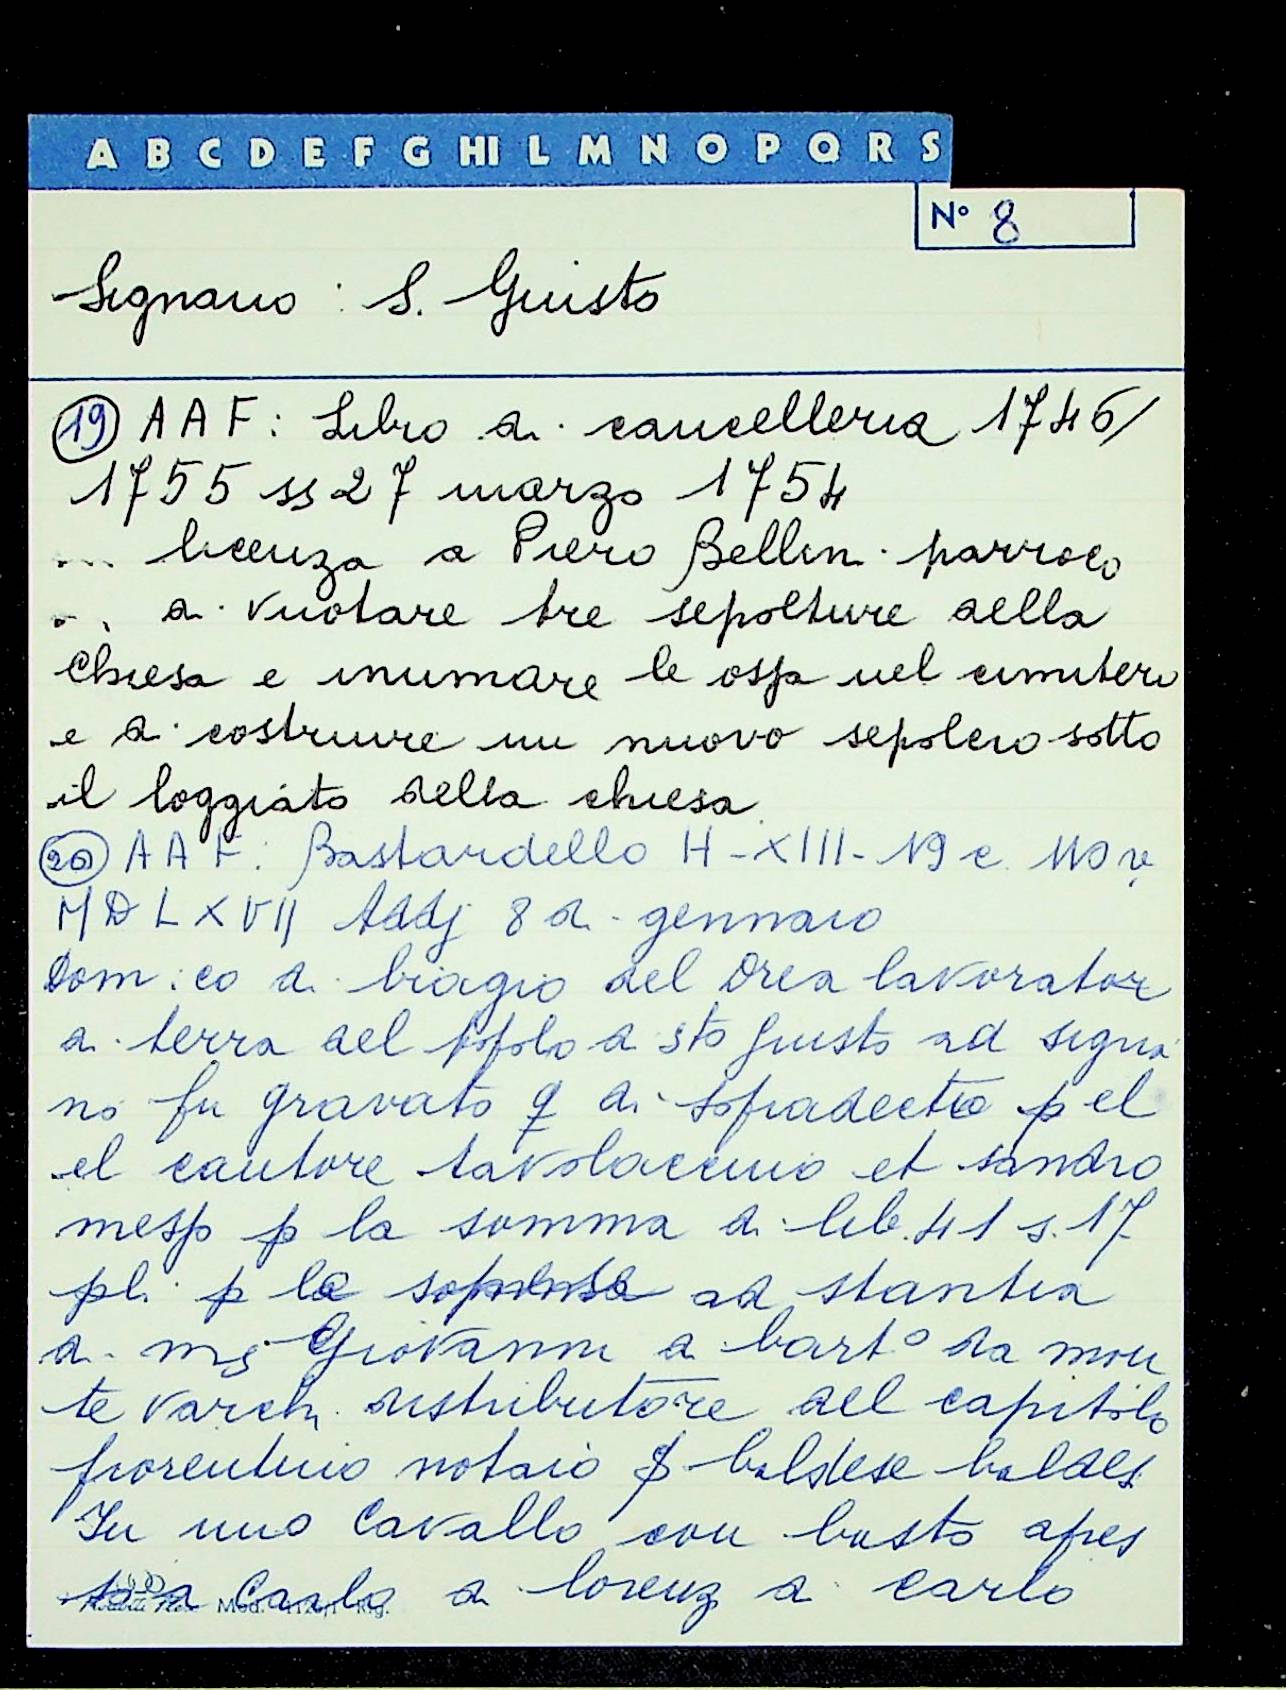 A B C D E F G HI L M N O P Q R S
N° 8
Signano : S. Giusto
19 A A F : Libro di cancelleria 1746/
1755 ss 27 marzo 1754
... licenza a Piero Bellini parroco
... di vuotare tre sepolture della
Chiesa e inumare le ossa nel cimitero
e di costruire un nuovo sepolcro sotto
il loggiato della chiesa.
20 A A F : Bastardello H-XIII-19 c. 110 v.
MDLXVII Addj 8 di gennaio
Dom:co di biagio del Drea lavorator
di terra del popolo di sto Giusto ad signa
no fu gravato q di sopradecto p el
el cantore tavolaccino et sandro
mesp p la somma di lib. 41 s. 17
pli p le ad stantia
di ms Giovanni di bart.o da mon
te varchi distributore del capitolo
fiorentino notaio baldese baldes.
In uno Cavallo con basto apes
Carlo di lorenz di Carlo